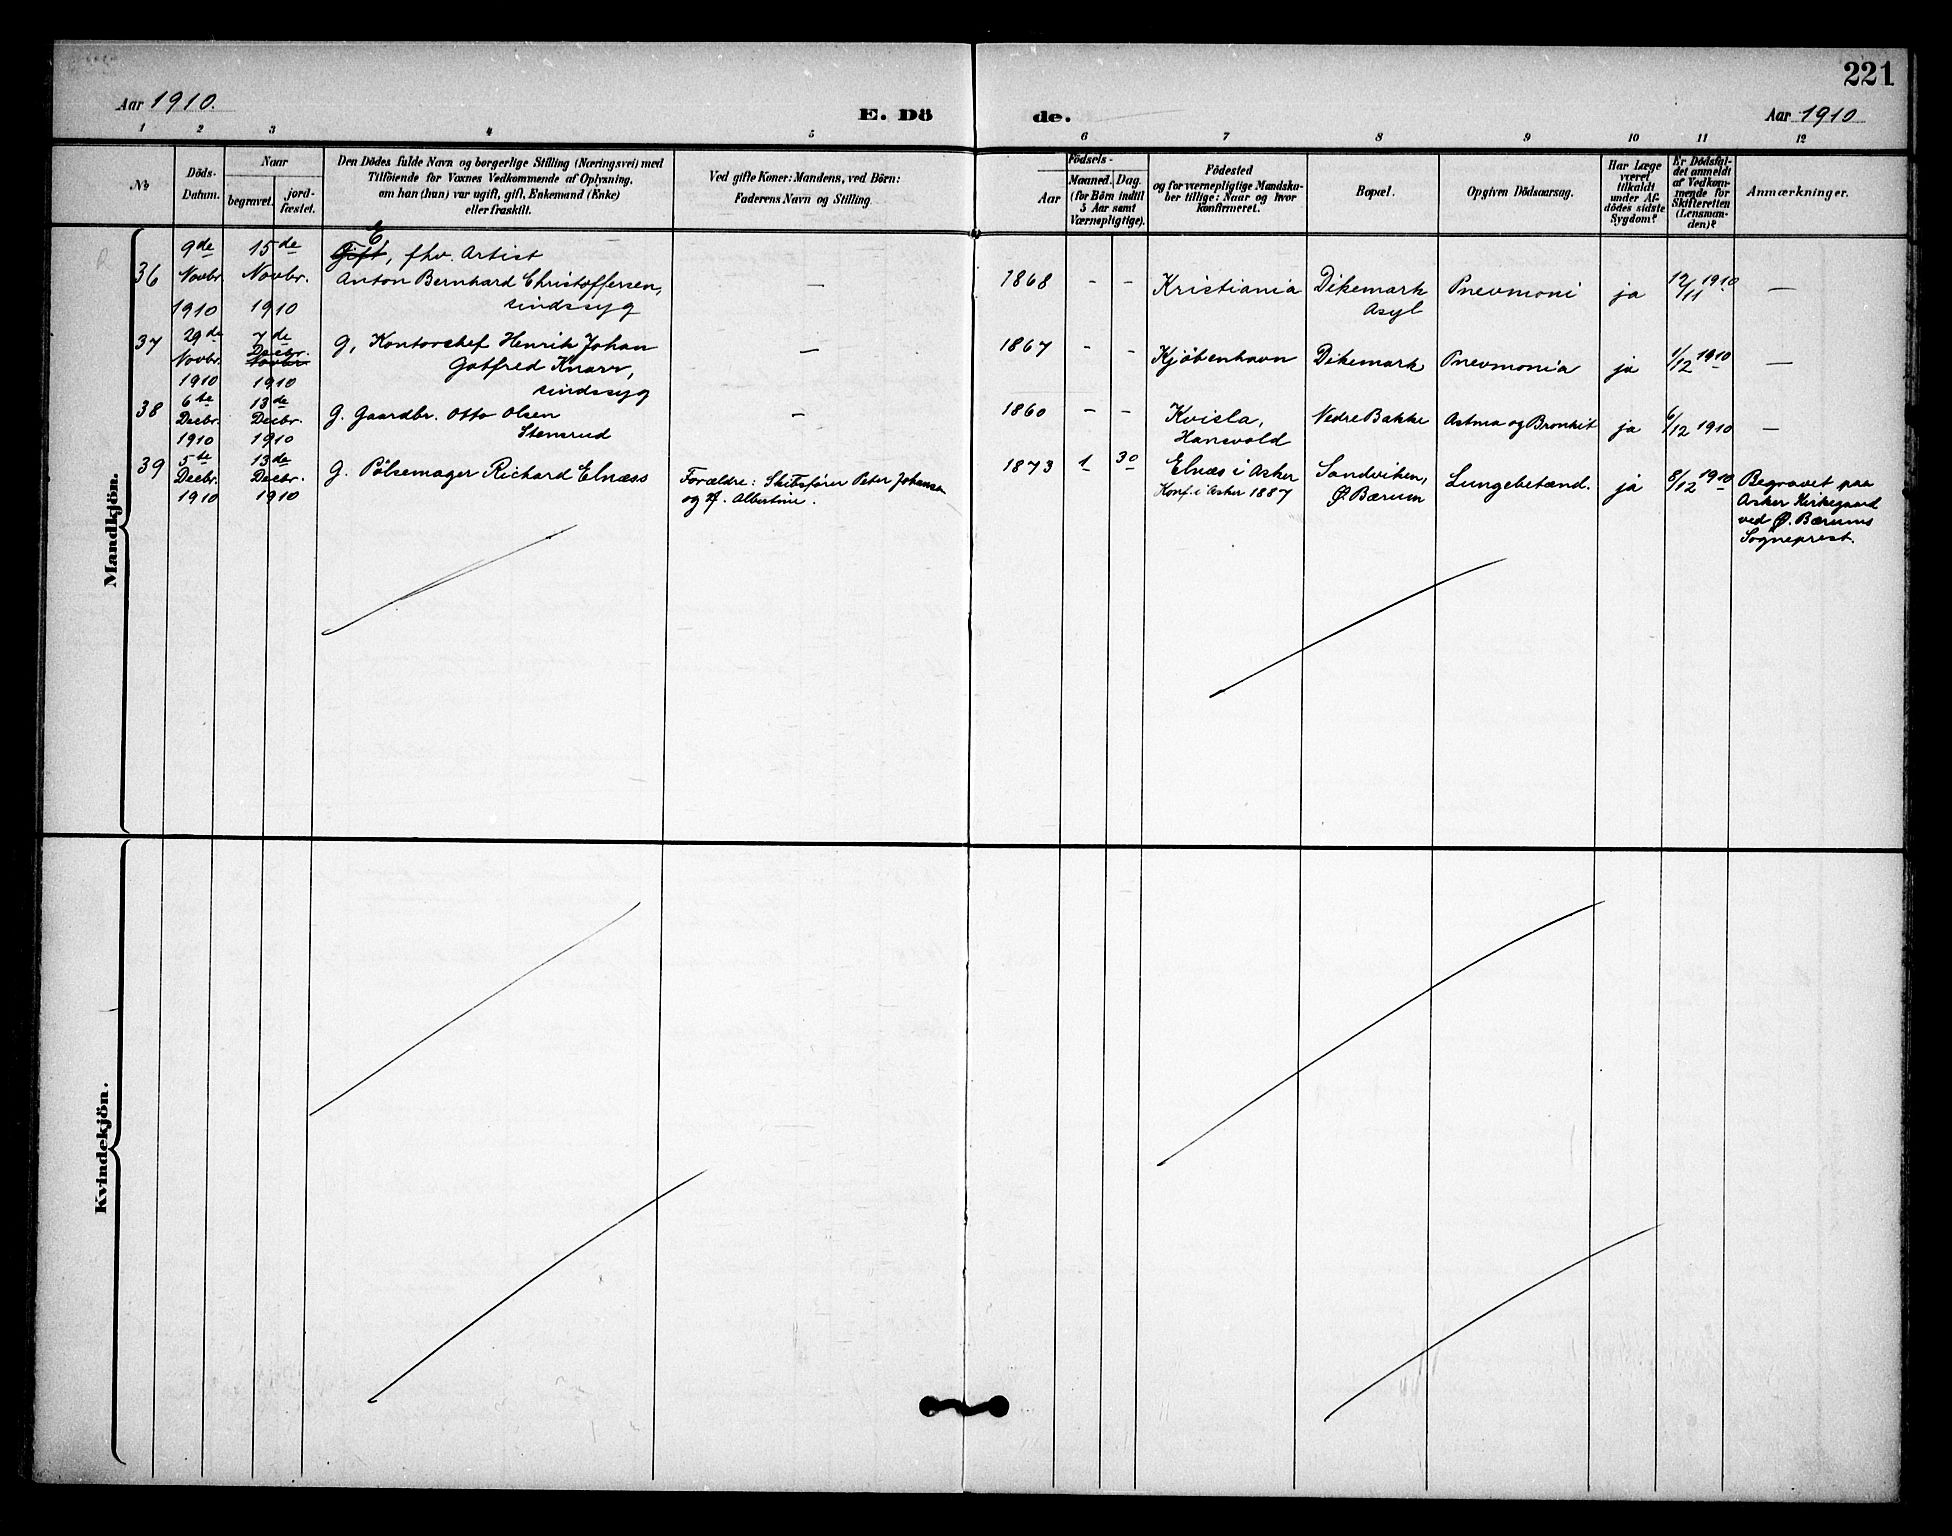 221
Aar 1910.
E. Dö
de.
Aar 1910
1 2 3 4 5 6 7 8 9 10 11 12
No
Döds-
Datum.
Naar
begravet.
jord-
fæstet.
Den Dödes fulde Navn og borgerlige Stilling (Næringsvei) med
Tilföiende for Voxnes Vedkommende af Oplysning,
om han (hun) var ugift, gift, Enkemand (Enke)
eller fraskilt.
Ved gifte Koner: Mandens, ved Börn:
Faderens Navn og Stilling
Födsels-
Aar
Maaned. Dag.
(for Börn indtil
5 Aar samt
Værnepligtige).
Födested
og for værnepligtige Mandska-
ber tillige: Naar og hvor
konfirmeret.
Bopæl.
Opgiven Dödsaarsag.
Har Læge
været
tilkaldt
under Af-
dödes sidste
Sygdom?
Er Dödsfal-
det anmeldt
af Vedkom-
mende for
Skifteretten
(Lensman-
den)?
Anmærkninger.
Mandkjön.
36
9de
Novbr.
1910
15de
Novbr.
1910
E
Gift, fhv. Artist
Anton Bernhard Christoffersen,
sindssyg
—
1868 - -
Kristiania
Dikemark
Asyl
Pnevmoni
ja
12/11 1910
—
37
29de
Novbr.
1910
7de
Decbr.
Novbr.
1910
g, Kontorchef Henrik Johan
Gotfred Knarr,
sindssyg
—
1867 - -
Kjøbenhavn
Dikemark
Pnevmonia
ja
1/12 1910
—
38
6te
Decbr.
1910
13de
Decbr.
1910
g. Gaardbr. Otto Olsen
Stensrud
—
1860 - -
Kvisla,
Nedre Bakke
Astma og Bronkit
ja
6/12 1910
—
39
5te
Decbr.
1910
13de
Decbr.
1910
g. Pölsemager Richard Elnæss
Forældre: Skibsfører Peter Johansen
og H. Albertine.
1873 1 30
Elnæs i Asker
Konf. i Asker 1887
Sandviken,
Ø. Bærum
Lungebetænd.
ja
8/12 1910
Begravet paa
Asker Kirkegaard
ved Ø. Bærums
Sogneprest.
Kvindekjön.